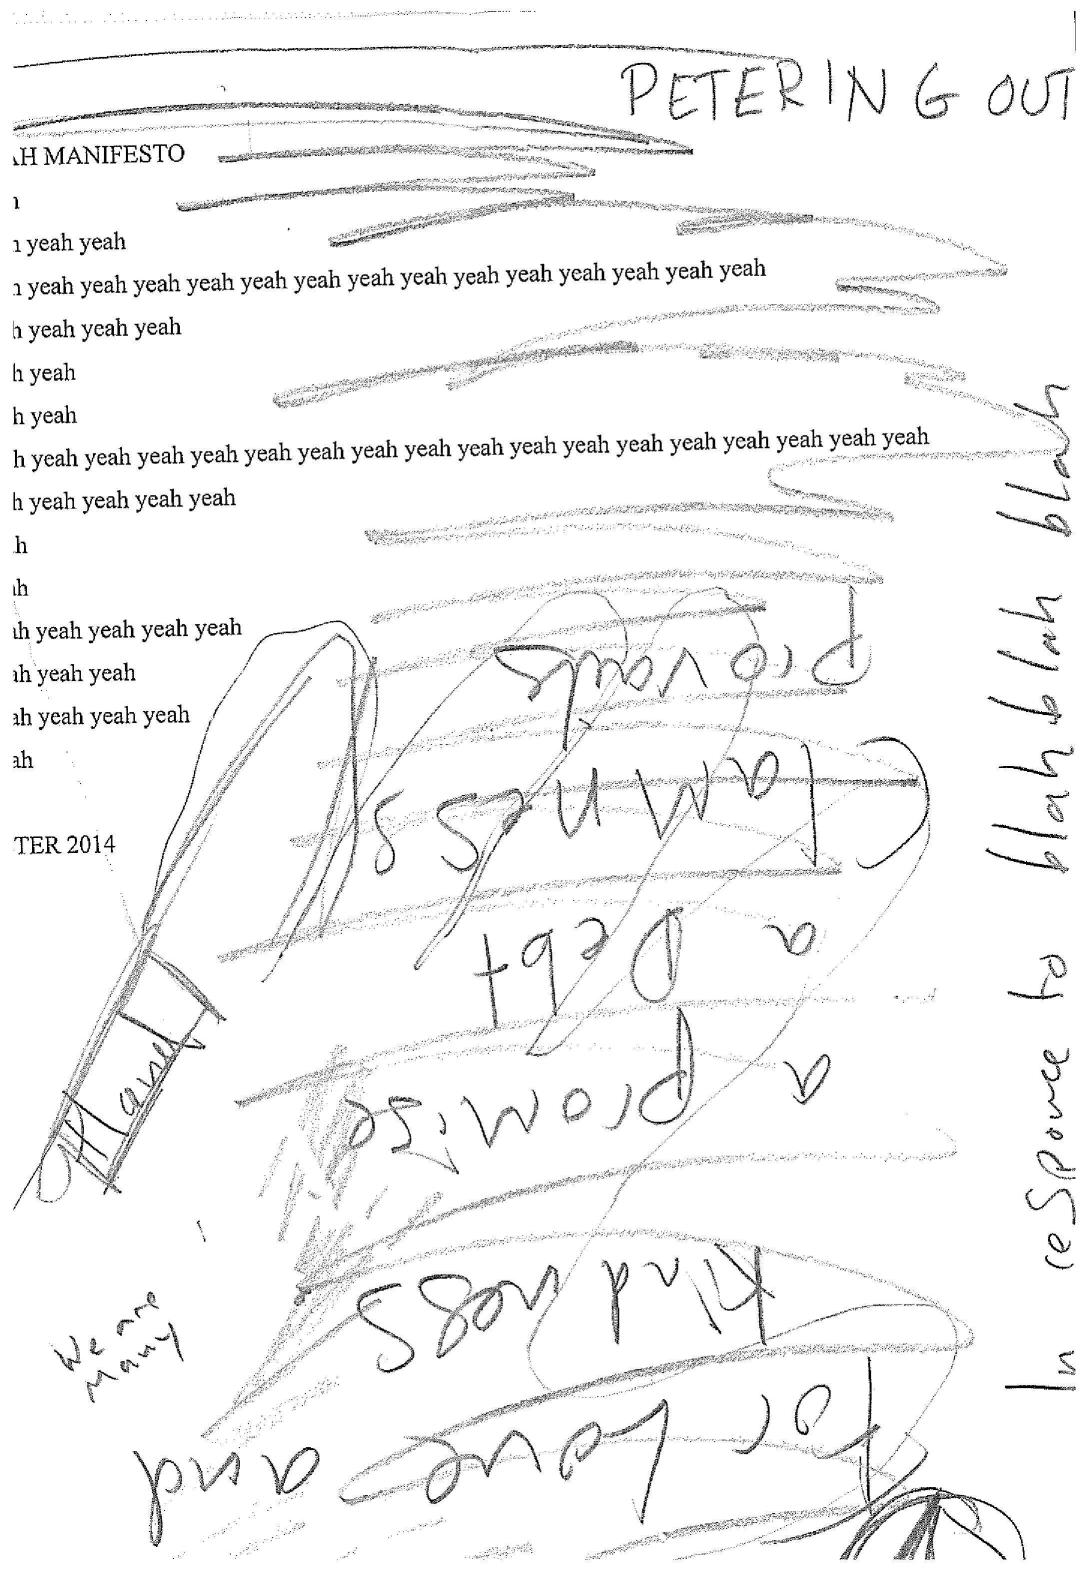 PETERING OUT
H MANIFESTO
h
h yeah yeah
h yeah yeah yeah yeah yeah yeah yeah yeah yeah yeah yeah yeah yeah yeah
h yeah yeah yeah
h yeah
h yeah
h yeah yeah yeah yeah yeah yeah yeah yeah yeah yeah yeah yeah yeah yeah yeah yeah yeah
h yeah yeah yeah yeah
h
ah
ah yeah yeah yeah yeah
ah yeah yeah
ah yeah yeah yeah
ah
TER 2014
Hand
We are
Many
In reSponce to blah blah blah
for Love and
Kindness
a promise
a Debt